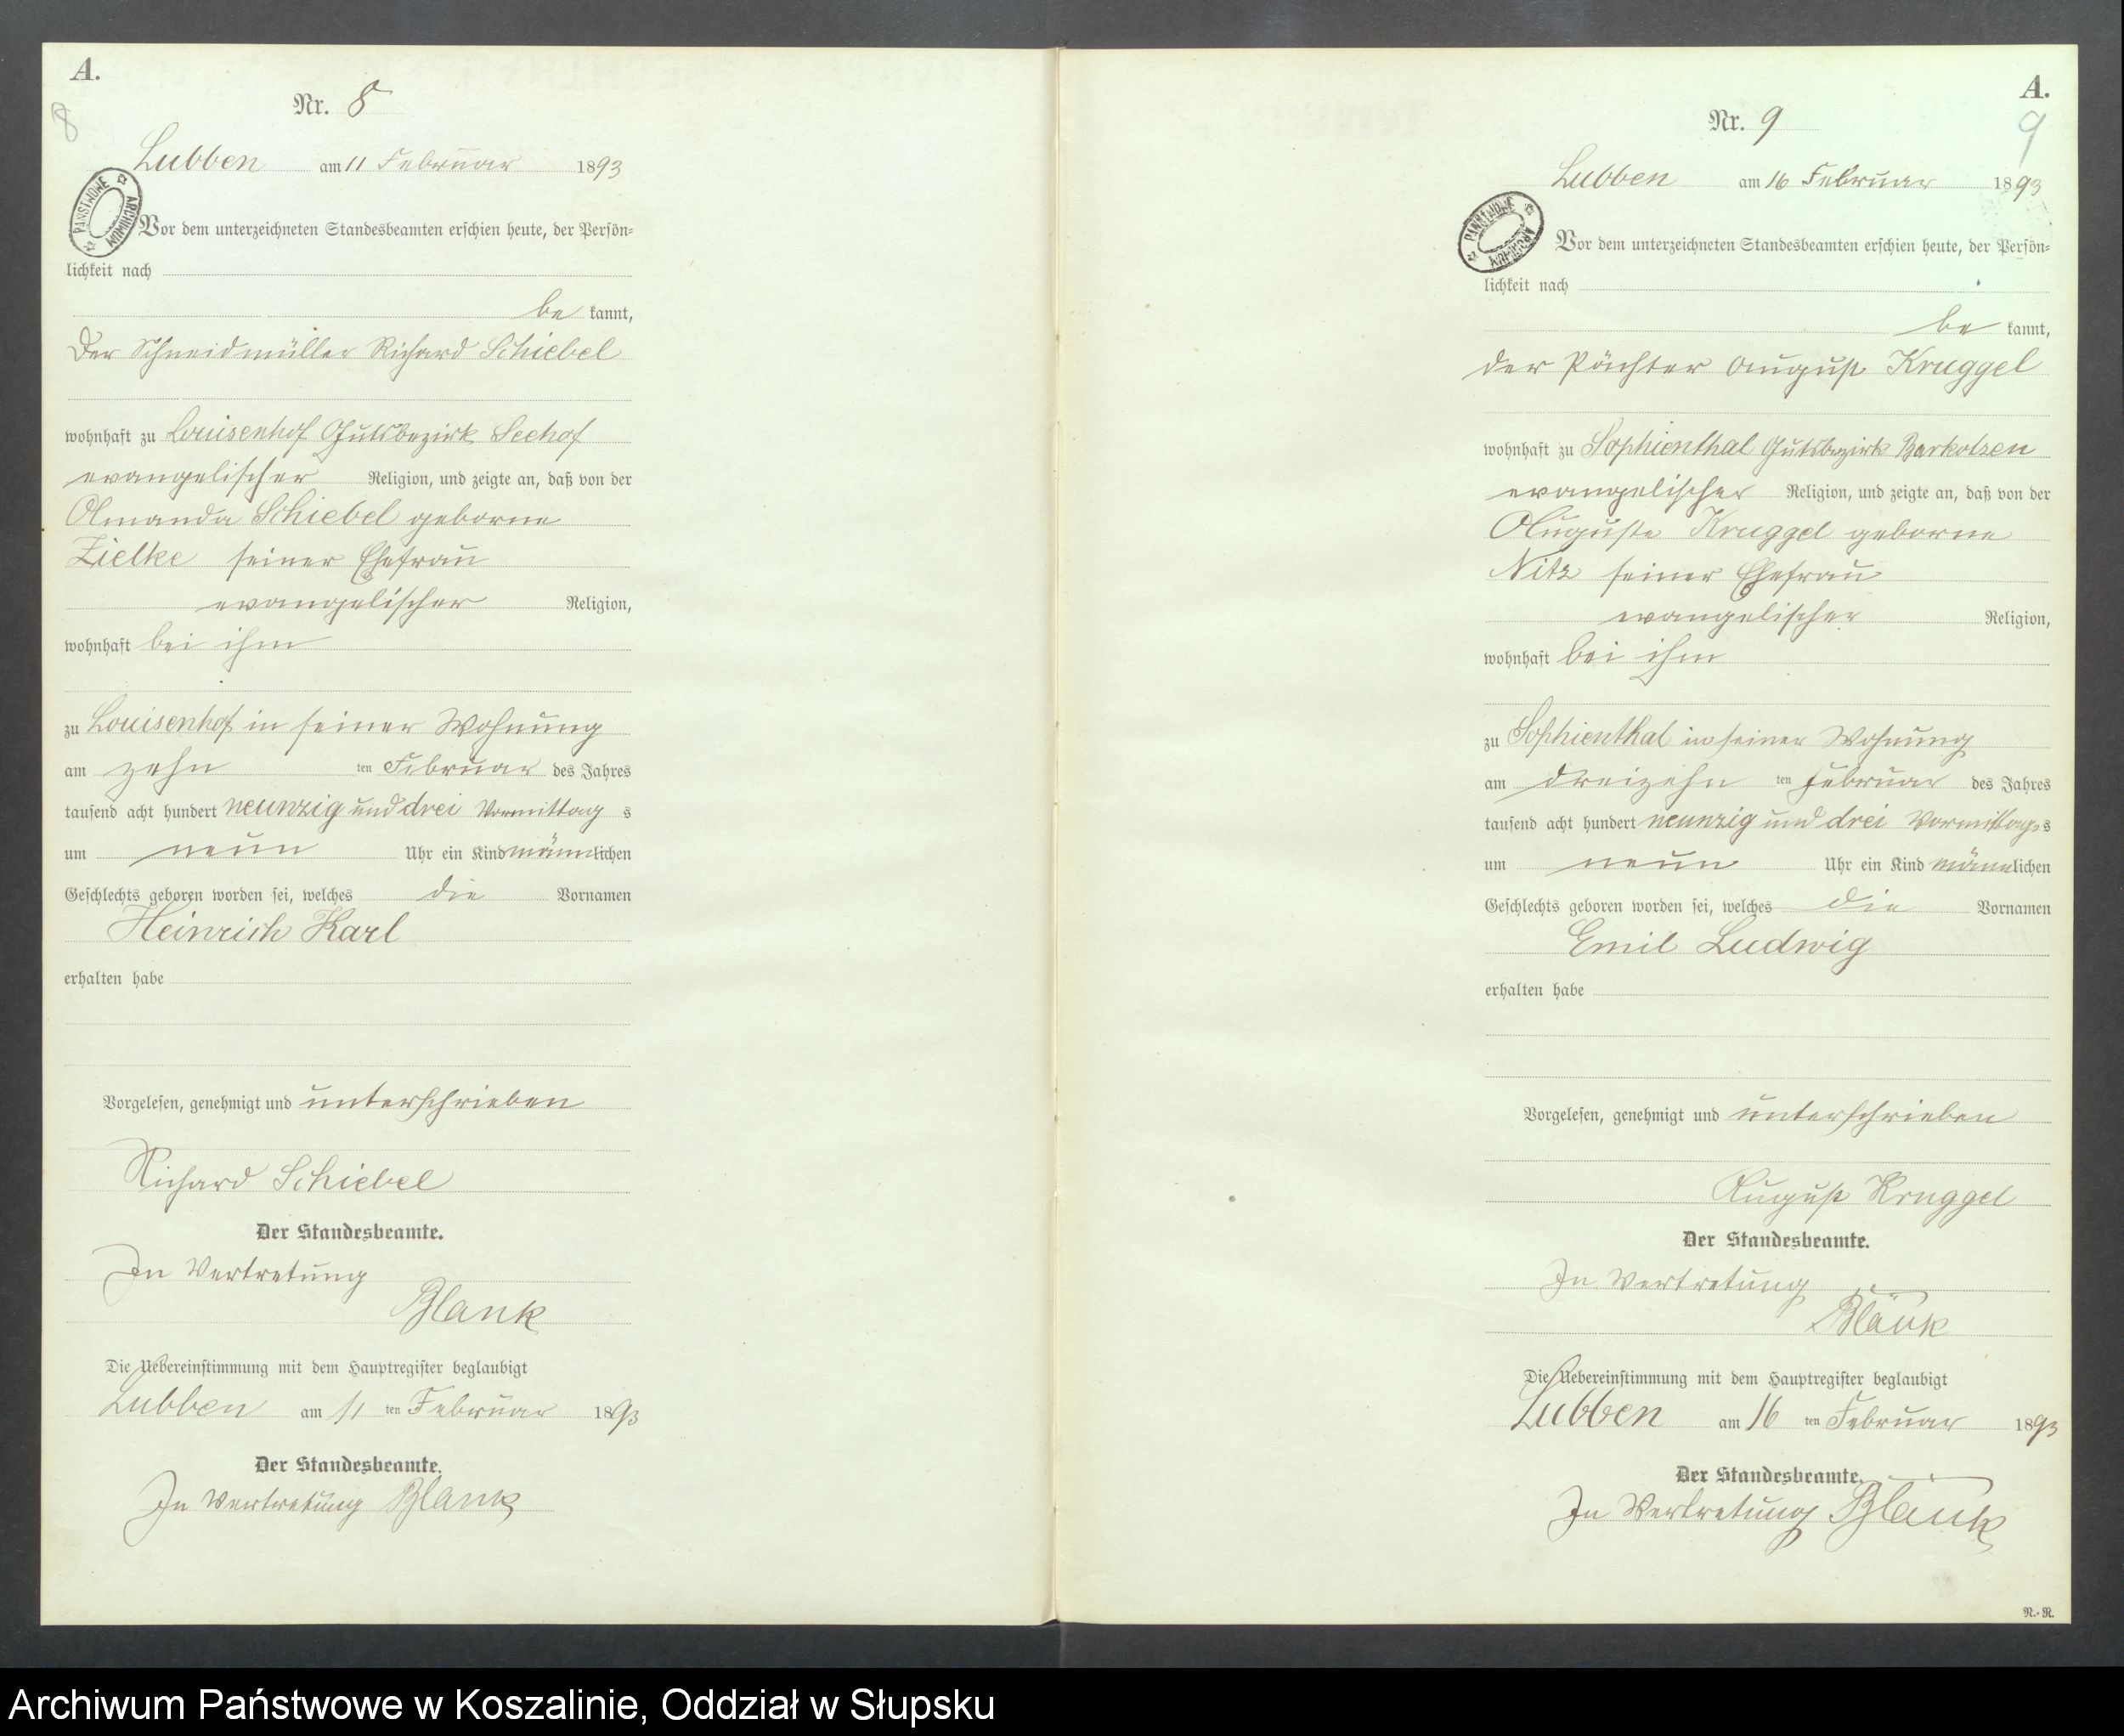 A.
8
Nr. 8
Lubben am 11 Februar 1893
PAŃSTWOWE ARCHIWUM
Vor dem unterzeichneten Standesbeamten erschien heute, der Persön-
lichkeit nach
be kannt,
Der Schneidmüller Richard Schiebel
wohnhaft zu Louisenhof Gutsbezirk Seehof
evangelischer Religion, und zeigte an, daß von der
Amanda Schiebel geborne
Zielke seiner Ehefrau
evangelischer Religion,
wohnhaft bei ihm
zu Louisenhof in seiner Wohnung
am zehn ten Februar des Jahres
tausend acht hundert neunzig und drei Vormittag s
um neun Uhr ein Kind männlichen
Geschlechts geboren worden sei, welches die Vornamen
Heinrich Karl
erhalten habe
Vorgelesen, genehmigt und unterschrieben
Richard Schiebel
Der Standesbeamte.
In Vertretung
Blank
Die Uebereinstimmung mit dem Hauptregister beglaubigt
Lubben am 11 ten Februar 1893
Der Standesbeamte.
In Vertretung Blank
A.
9
Nr. 9
Lubben am 16 Februar 1893
PAŃSTWOWE ARCHIWUM
Vor dem unterzeichneten Standesbeamten erschien heute, der Persön-
lichkeit nach
be kannt,
der Pächter August Kruggel
wohnhaft zu Sophienthal Gutsbezirk Barkotzen
evangelischer Religion, und zeigte an, daß von der
Auguste Kruggel geborne
Nitz seiner Ehefrau
evangelischer Religion,
wohnhaft bei ihm
zu Sophienthal in seiner Wohnung
am dreizehn ten Februar des Jahres
tausend acht hundert neunzig und drei Vormittags s
um neun Uhr ein Kind männlichen
Geschlechts geboren worden sei, welches die Vornamen
Emil Ludwig
erhalten habe
Vorgelesen, genehmigt und unterschrieben
August Kruggel
Der Standesbeamte.
In Vertretung
Blank
Die Uebereinstimmung mit dem Hauptregister beglaubigt
Lubben am 16 ten Februar 1893
Der Standesbeamte.
In Vertretung Blank
N.-R.
Archiwum Państwowe w Koszalinie, Oddział w Słupsku